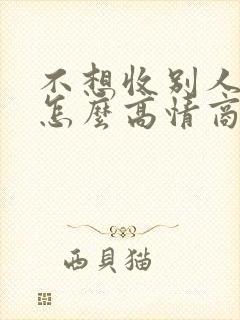 不想收别人
怎麼高情商
西貝猫